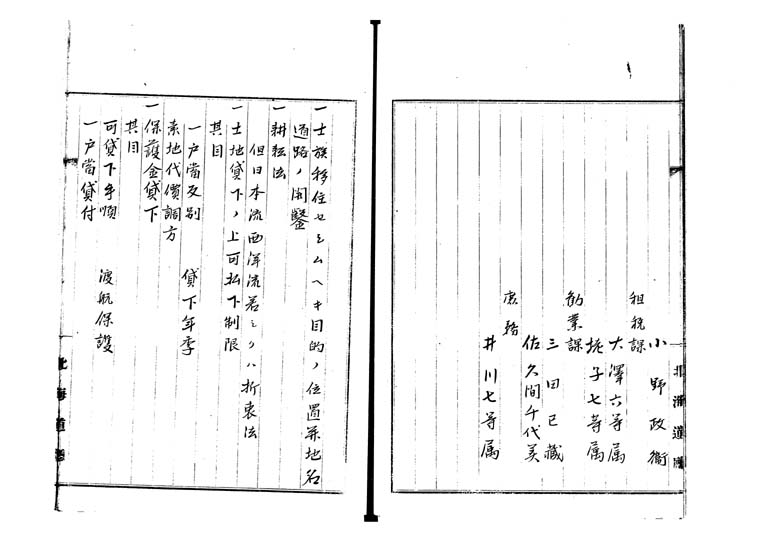 小野政衛
租税課
大澤六等属
桃子七等属
勧業課
三田已蔵
佐久間千代美
庶務
井川七等属
北海道廳
一士族移住セシムヘキ目的ノ位置并地名
道路ノ開鑿
一耕耘法
但日本流西洋流若シクハ折衷法
一土地貸下ノ上可払下制限
其目
一戸當反別 貸下年季
素地代價調方
一保護金貸下
其目
可貸下手順 渡航保護
一戸當貸付
北海道廳